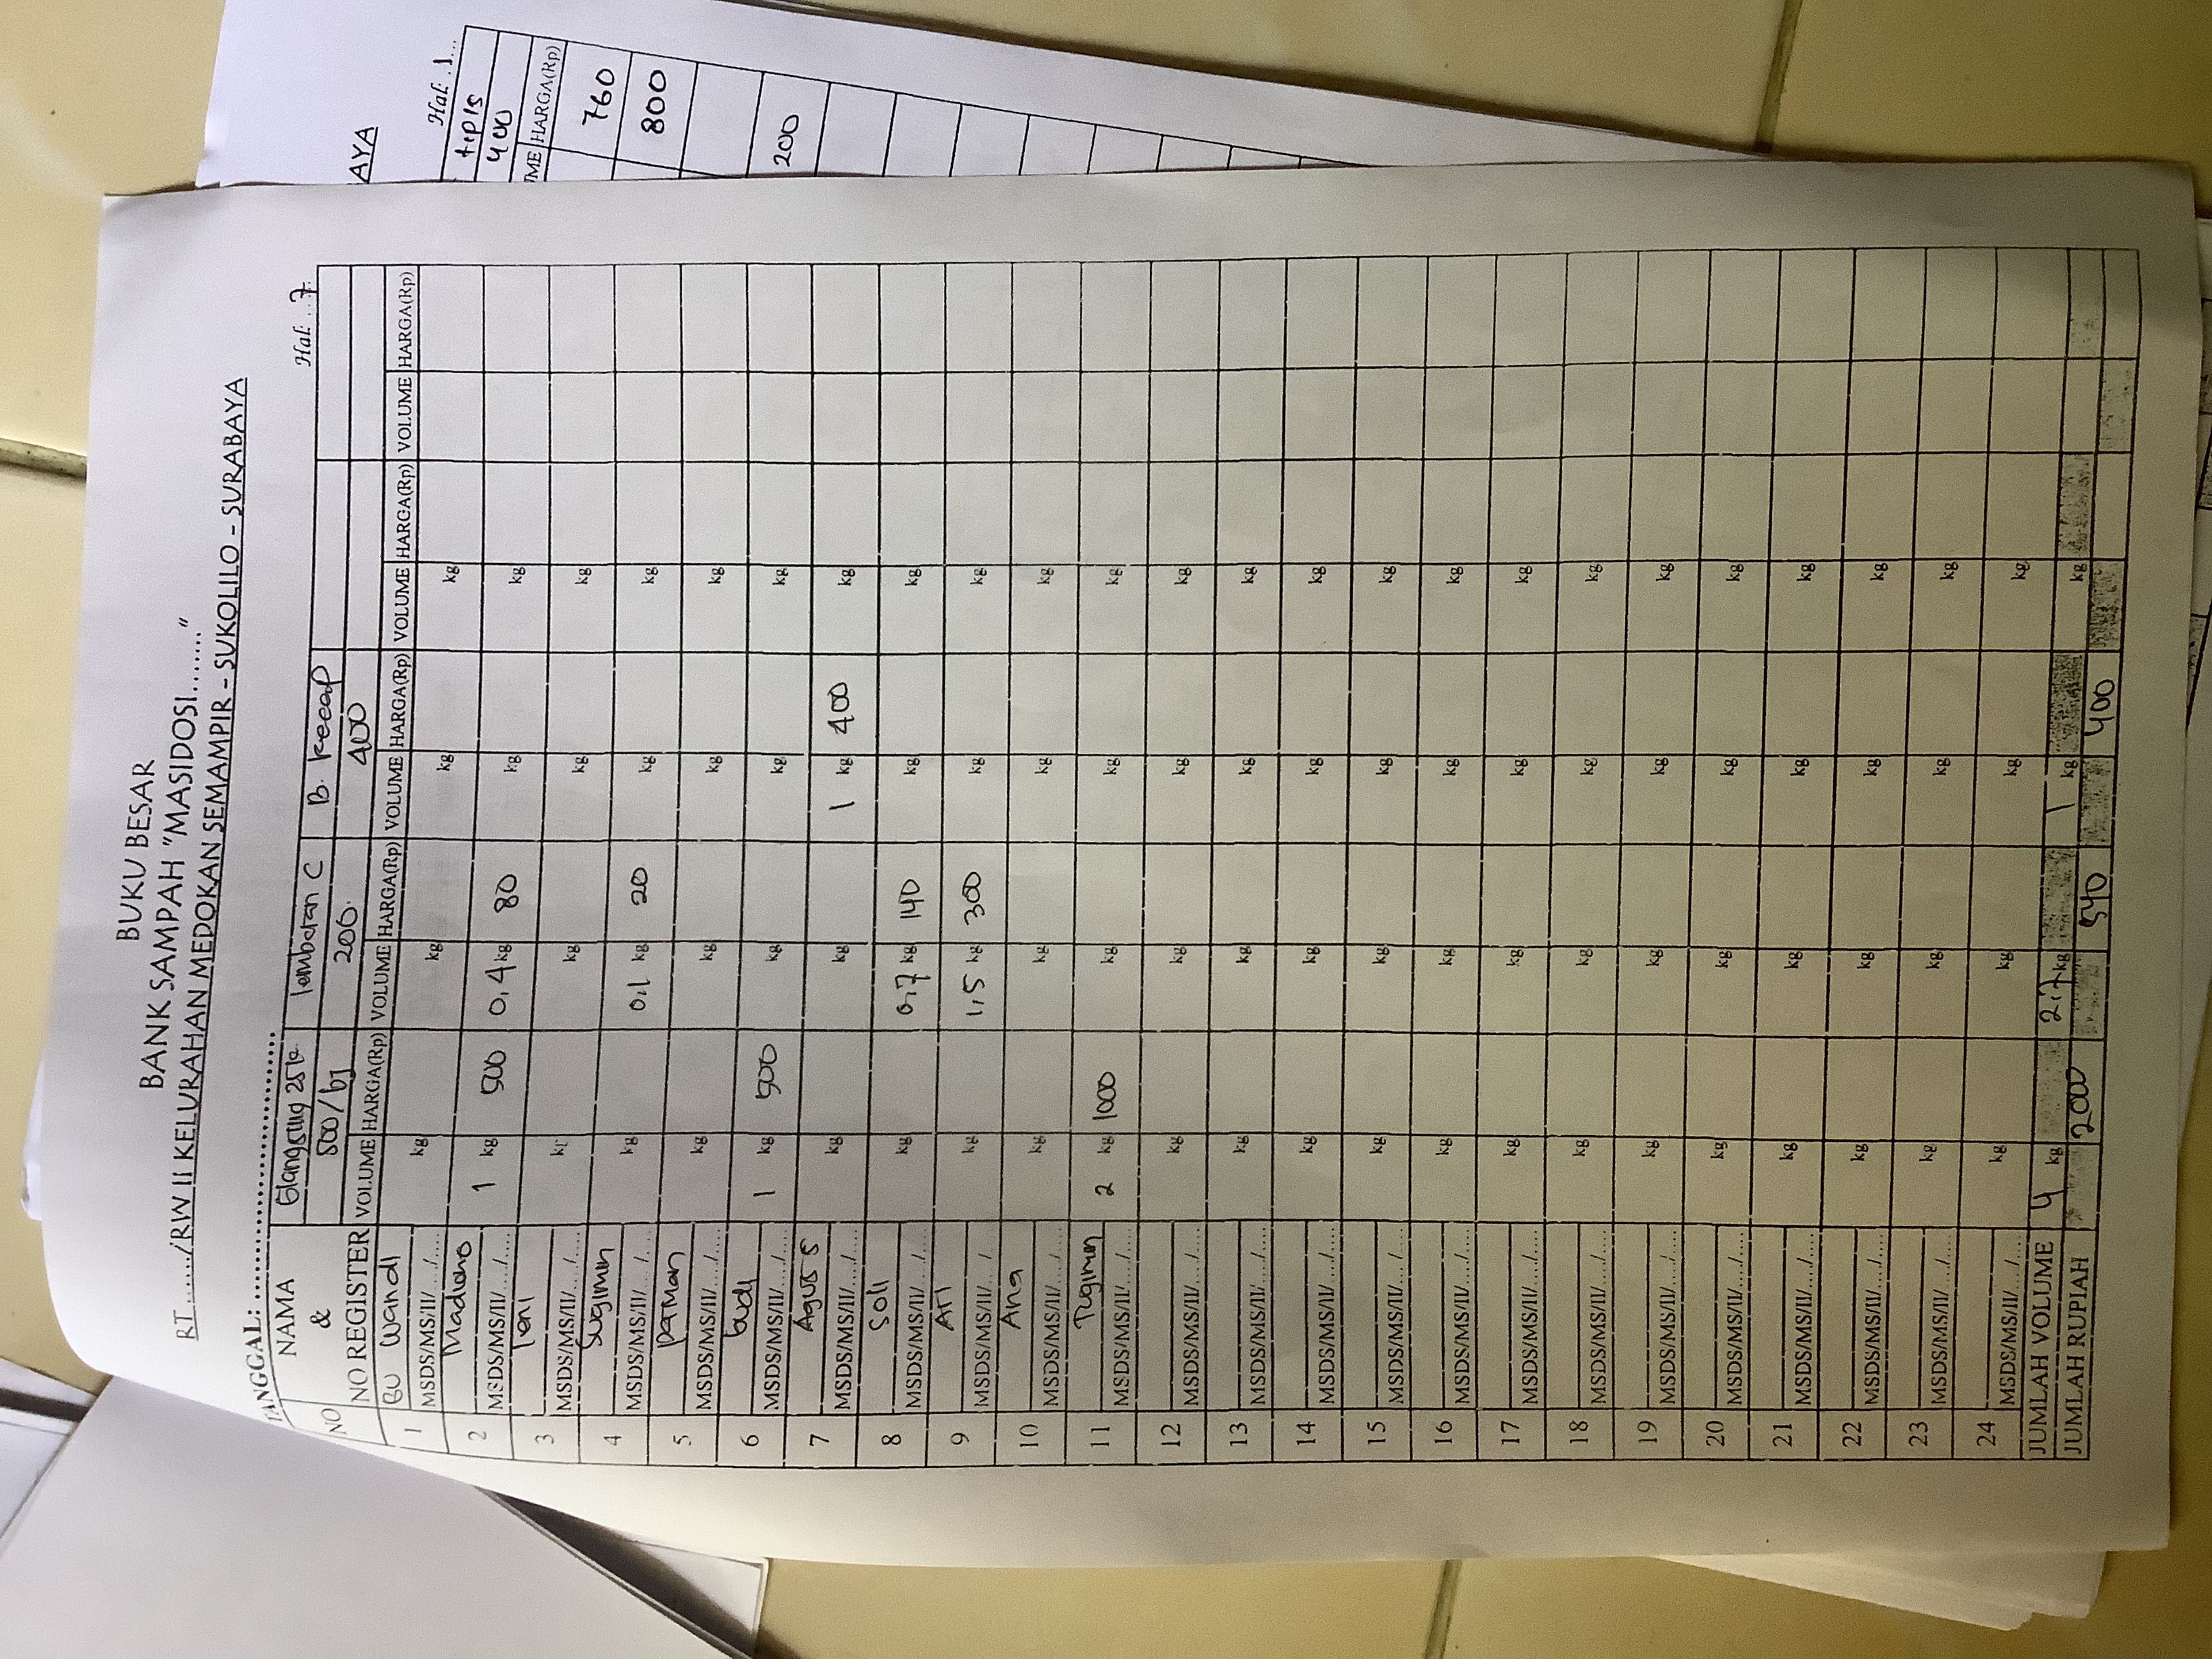 BUKU BESAR
BANK SAMPAH "MASIDOSI......."
RT....../RW II KELURAHAN MEDOKAN SEMAMPIR - SUKOLILO - SURABAYA
TANGGAL: ..............................
Hal: ..7.
NO NAMA & NO REGISTER
Glangsing 25k lembaran C B. Kecap
500/bj 200. 400
VOLUME HARGA(Rp) VOLUME HARGA(Rp) VOLUME HARGA(Rp) VOLUME HARGA(Rp) VOLUME HARGA(Rp)
1 BU Wandi
MSDS/MS/II/..../.... kg kg kg kg
2 Madiono
MSDS/MS/II/..../.... 1 kg 500 0,4 kg 80 kg kg
3 Teni
MSDS/MS/II/..../.... kg kg kg kg
4 Sugimin
MSDS/MS/II/..../.... kg 0,1 kg 20 kg kg
5 paman
MSDS/MS/II/..../.... kg kg kg kg
6 budi
MSDS/MS/II/..../.... 1 kg 500 kg kg kg
7 Agus S
MSDS/MS/II/..../.... kg kg 1 kg 400 kg
8 Soli
MSDS/MS/II/..../.... kg 0,7 kg 140 kg kg
9 Ari
MSDS/MS/II/..../.... kg 1,5 kg 300 kg kg
10 Ana
MSDS/MS/II/..../.... kg kg kg kg
11 Tugimin
MSDS/MS/II/..../.... 2 kg 1000 kg kg kg
12 MSDS/MS/II/..../.... kg kg kg kg
13 MSDS/MS/II/..../.... kg kg kg kg
14 MSDS/MS/II/..../.... kg kg kg kg
15 MSDS/MS/II/..../.... kg kg kg kg
16 MSDS/MS/II/..../.... kg kg kg kg
17 MSDS/MS/II/..../.... kg kg kg kg
18 MSDS/MS/II/..../.... kg kg kg kg
19 MSDS/MS/II/..../.... kg kg kg kg
20 MSDS/MS/II/..../.... kg kg kg kg
21 MSDS/MS/II/..../.... kg kg kg kg
22 MSDS/MS/II/..../.... kg kg kg kg
23 MSDS/MS/II/..../.... kg kg kg kg
24 MSDS/MS/II/..../.... kg kg kg kg
JUMLAH VOLUME 4 kg 2,7 kg 1 kg kg
JUMLAH RUPIAH 2000 540 400
AYA
Hal: .1...
tipis
400
ME HARGA(Rp)
760
800
200